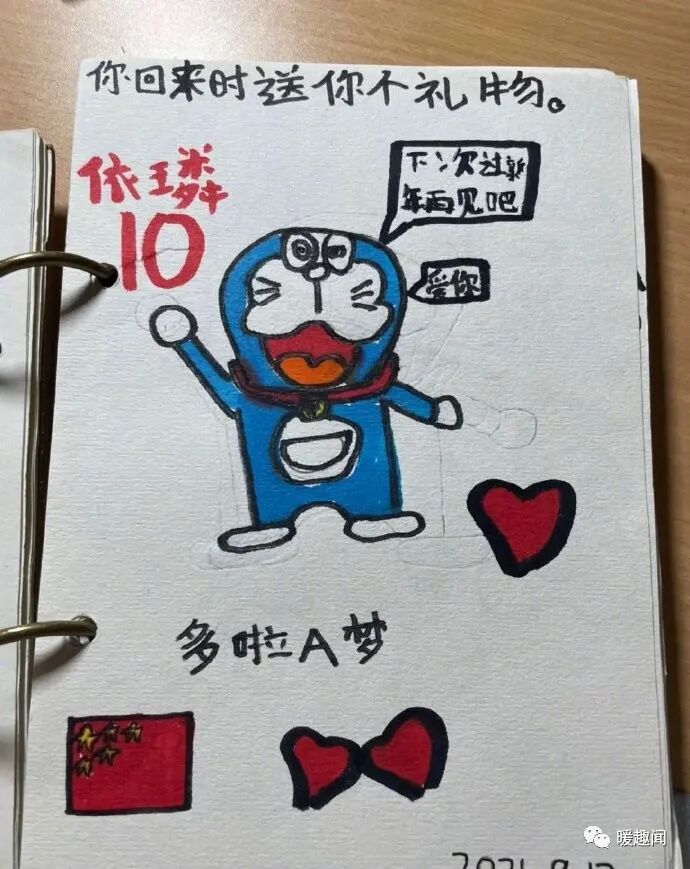 你回来时送你个礼物。
依璘
10
下次过新
年再见吧
爱你
多啦A梦
暖趣闻